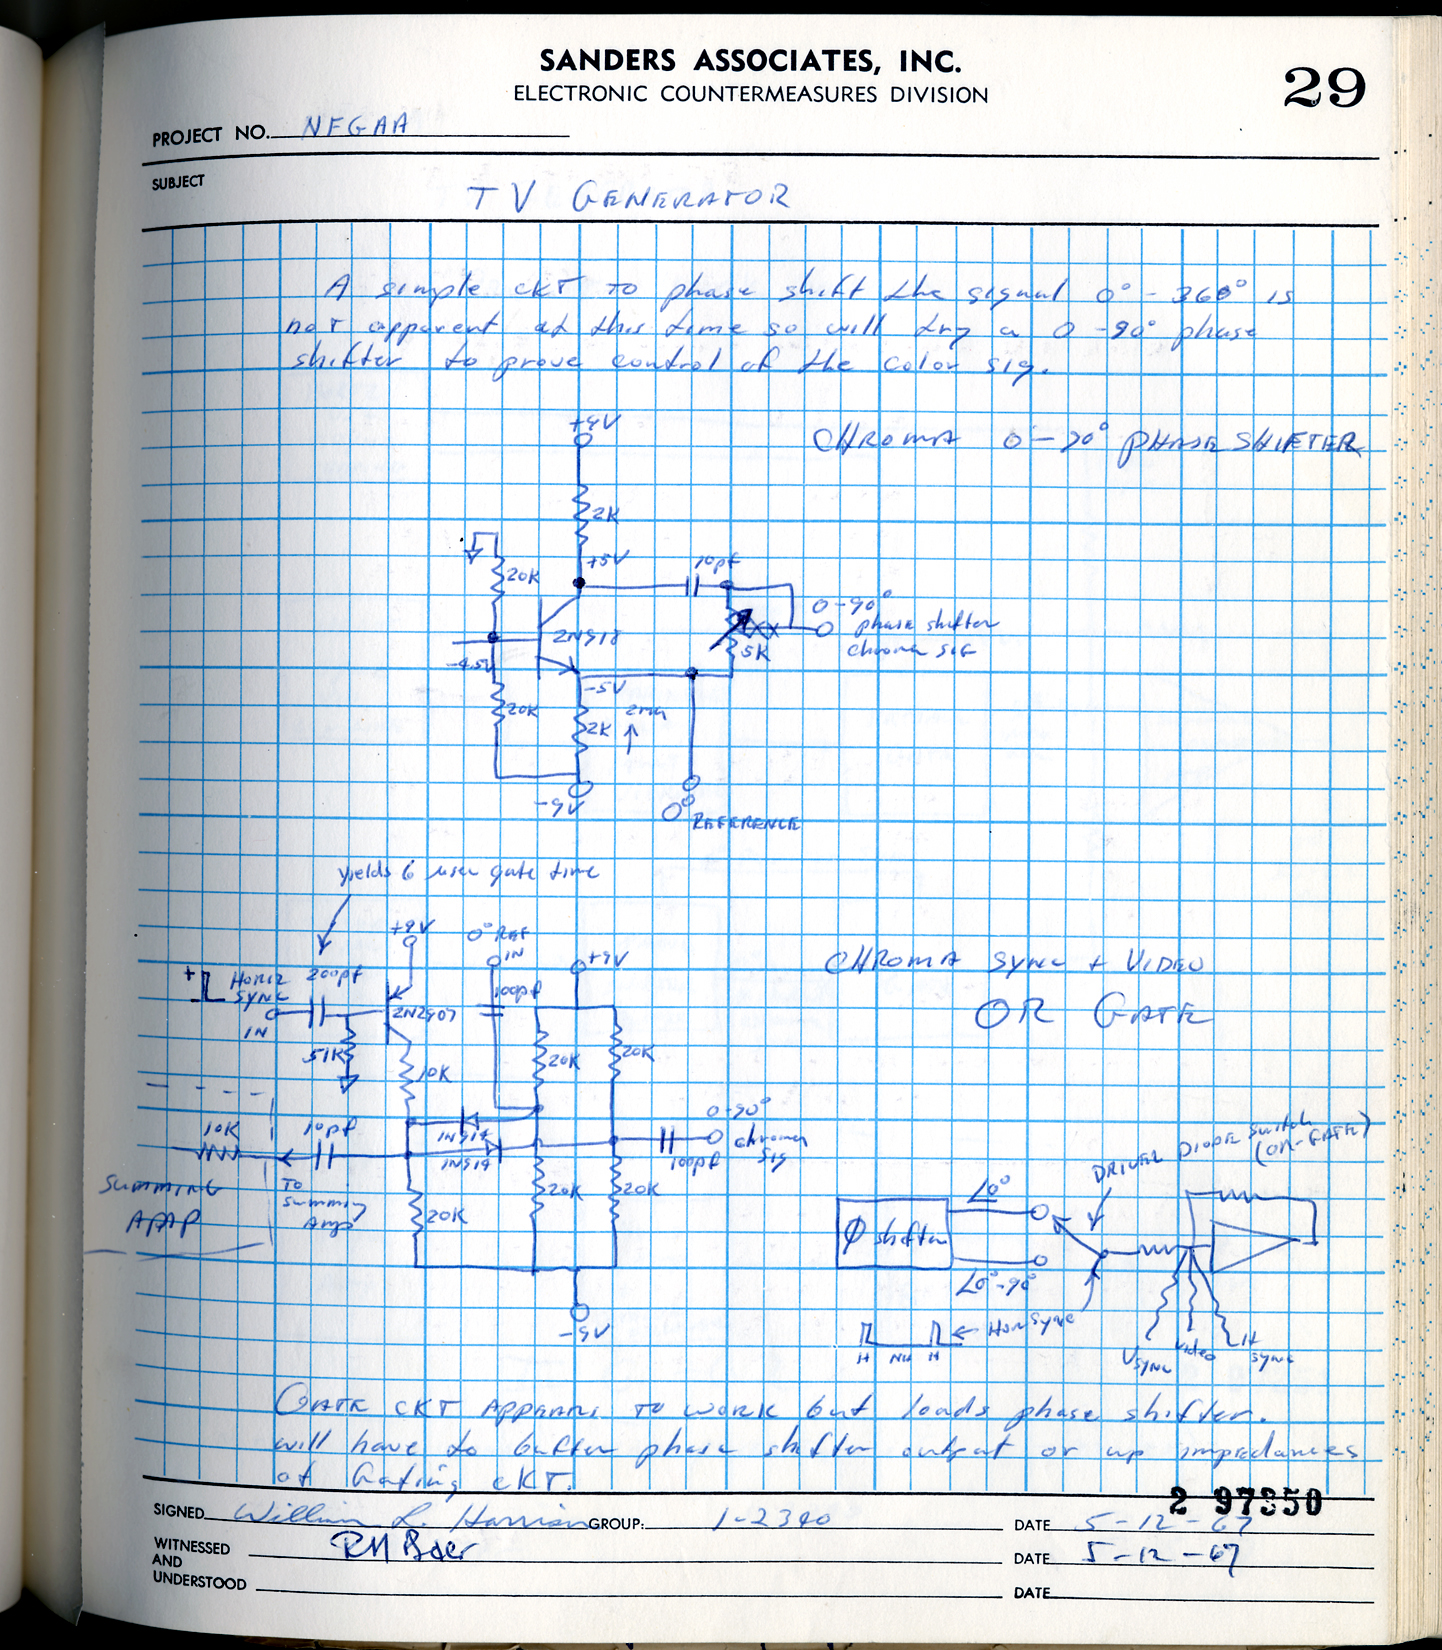 SANDERS ASSOCIATES, INC.
ELECTRONIC COUNTERMEASURES DIVISION
29
PROJECT NO. NFGAA
SUBJECT
TV GENERATOR
A simple ckt to phase shift the signal 0° - 360° is
not apparent at this time so will try a 0 -90° phase
shifter to prove control of the color sig.
CHROMA 0 - 90° PHASE SHIFTER
+9V
2K
+5V
10pf
20K
0-90°
phase shifter
chroma sig
2N918
5K
-4.5V
-5V
20K
2K
2ma
-9V
0°
REFERENCE
yields 6 usec gate time
+9V
0° REF
IN
+9V
CHROMA SYNC + VIDEO
OR GATE
+
HORIZ
SYNC
IN
200pf
100pf
2N2907
51K
10K
20K
20K
0-90°
chroma
sig
10K
10pf
1N914
1N914
100pf
DRIVEN DIODE SWITCH
(OR-GATE)
SUMMING
AMP
To
Summing
Amp
20K
20K
20K
∠0°
Ø shifter
∠0°-90°
-9V
Hor Sync
H
H
V SYNC
Video
H
SYNC
GATE CKT APPEARS TO WORK but loads phase shifter.
will have to buffer phase shifter output or up impedances
of Gating CKT.
2 97350
SIGNED William L. Harrison GROUP: 1-2340 DATE 5-12-67
WITNESSED
AND
UNDERSTOOD
RH Baer DATE 5-12-67
DATE